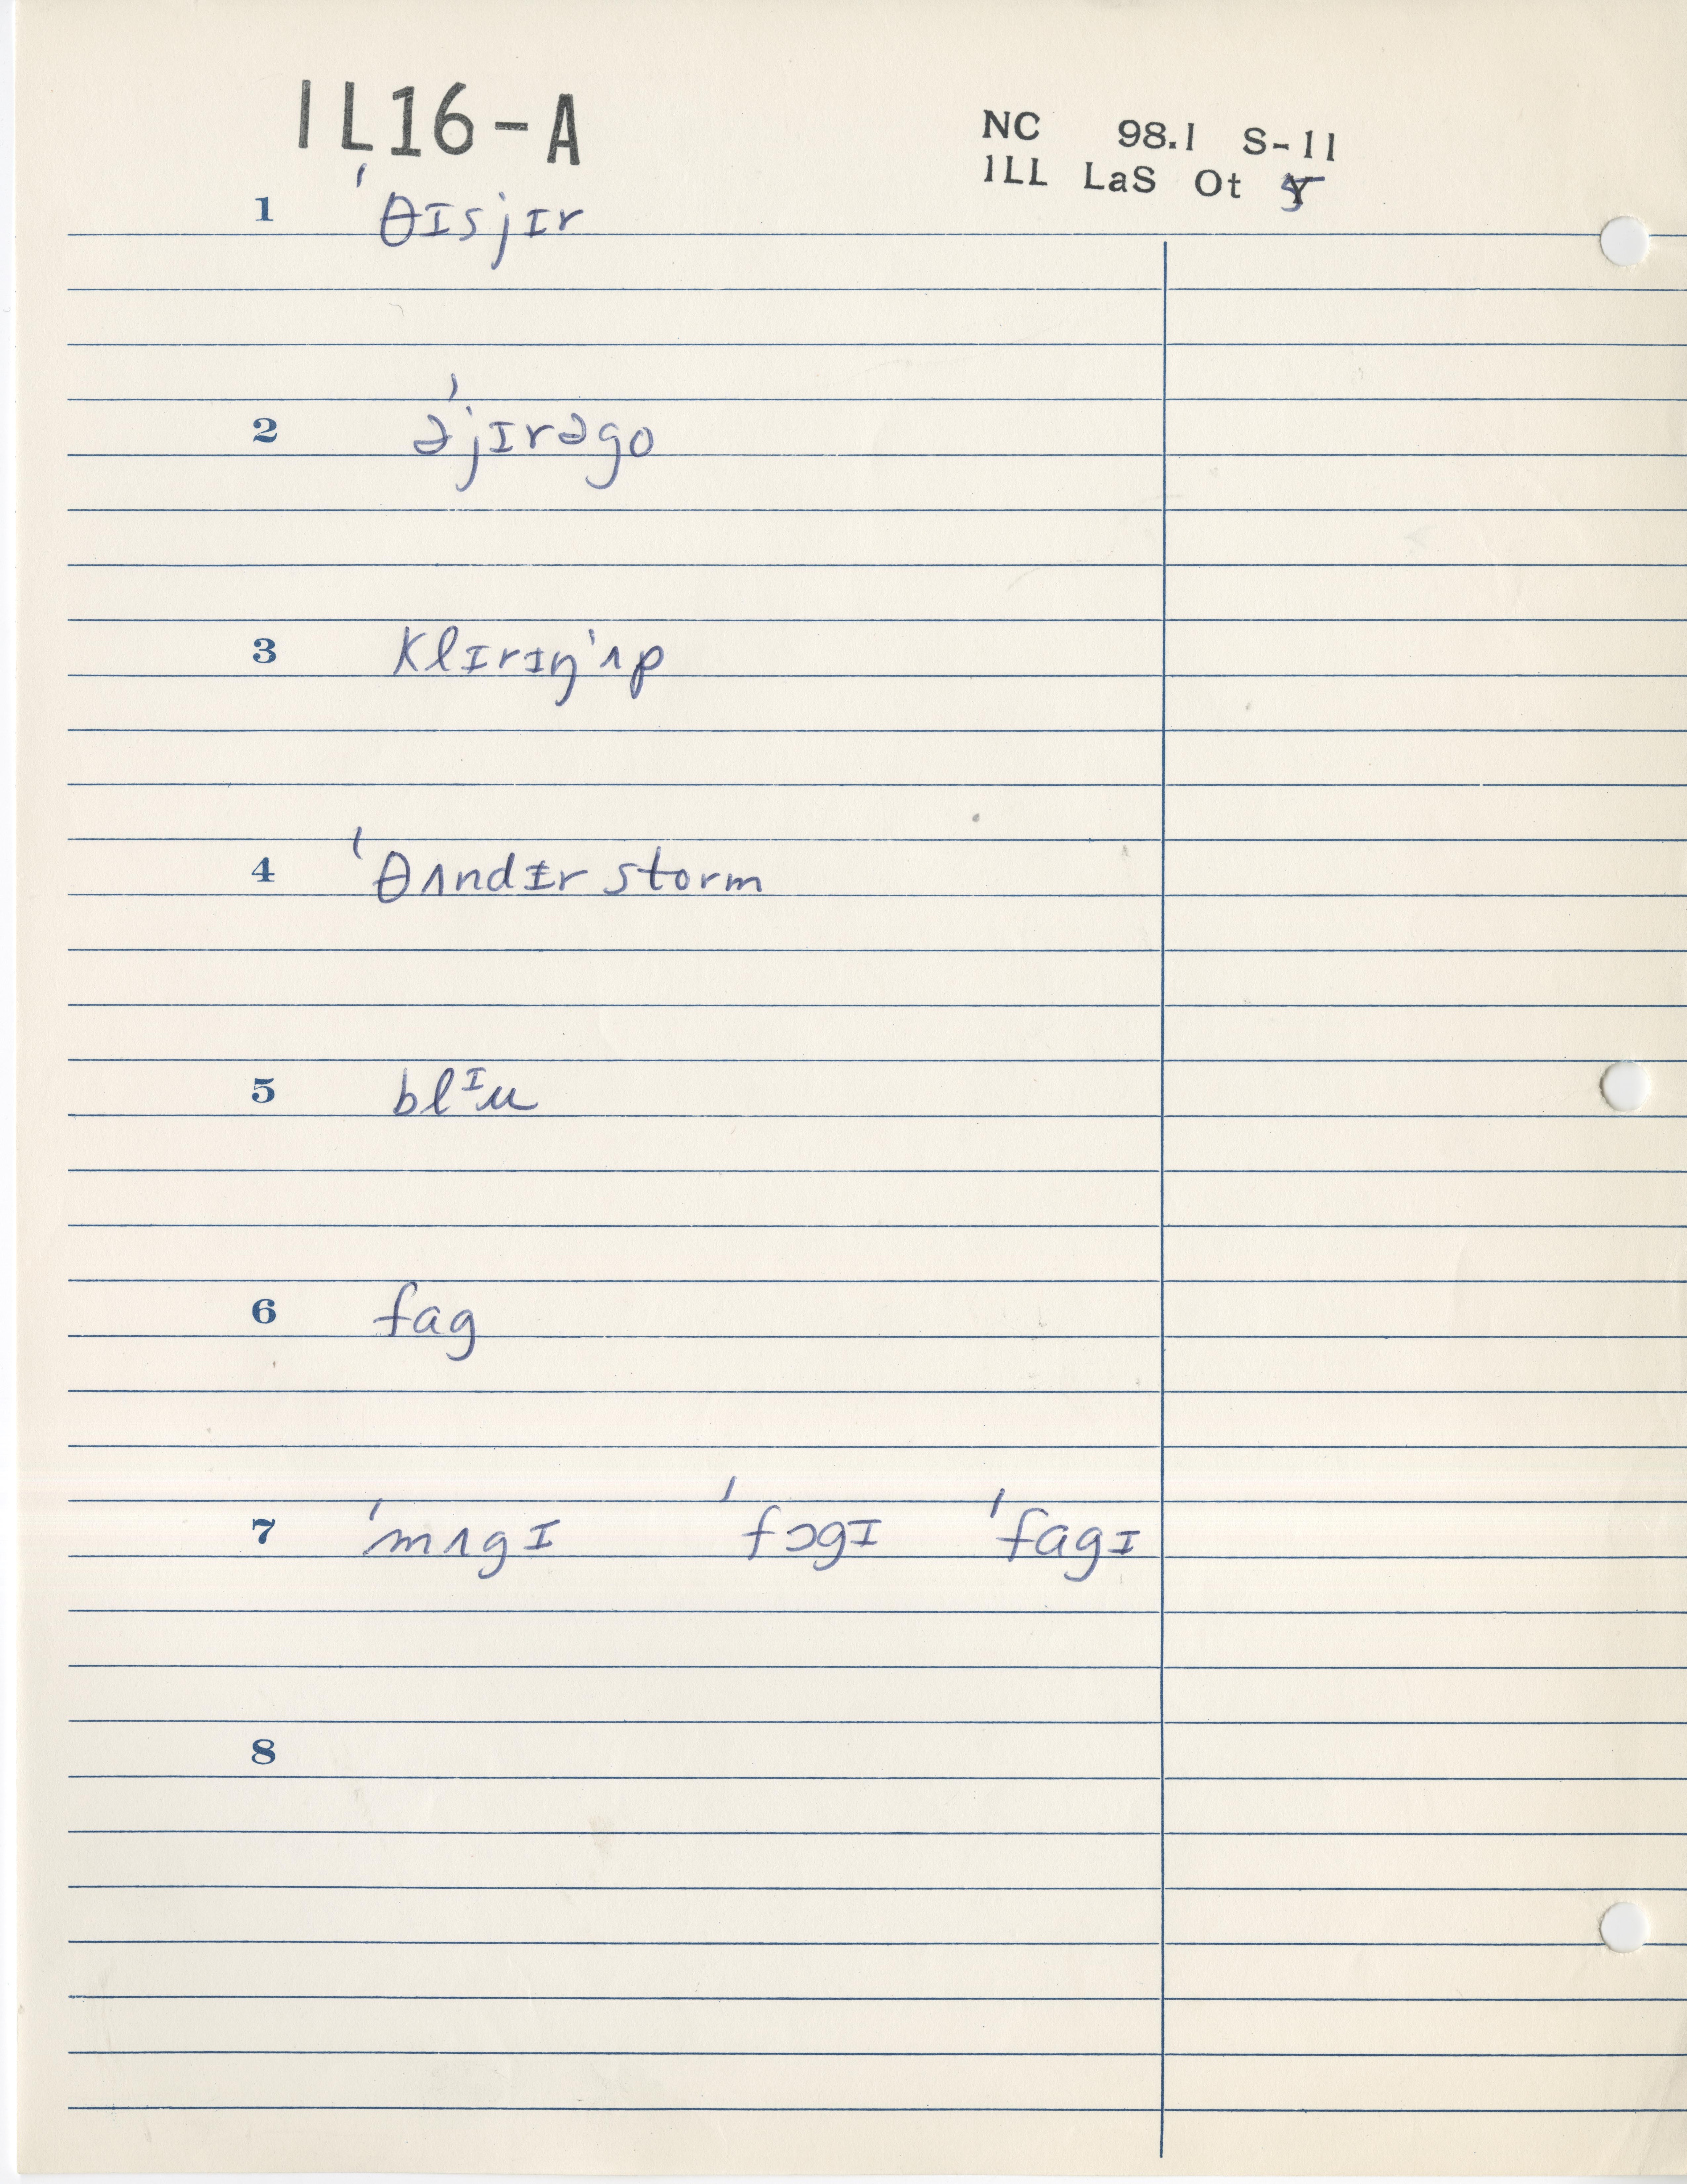 IL16-A
NC 98.1 S-11
ILL LaS Ot 5
1 ˈθɪsjɪr
2 əˈjɪrəgo
3 klɪrɪŋˈʌp
4 ˈθʌndɪr storm
5 blᶦu
6 fag
7 ˈmʌgɪ ˈfɔgɪ ˈfagɪ
8